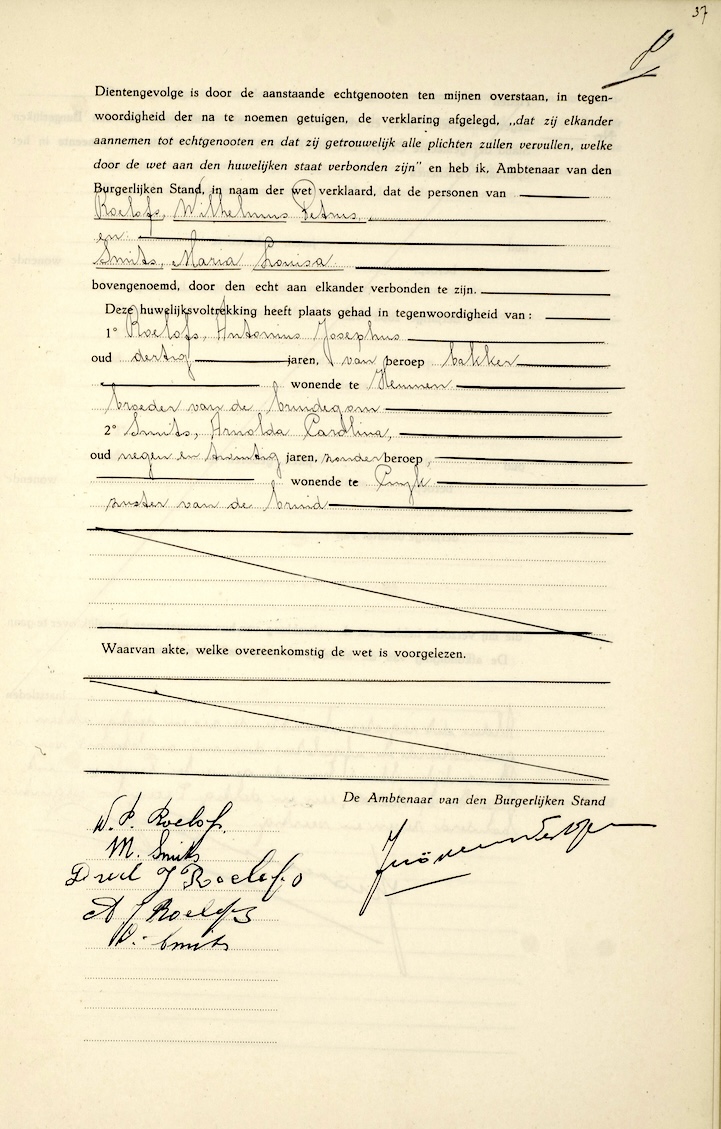 37
Dientengevolge is door de aanstaande echtgenooten ten mijnen overstaan, in tegen-
woordigheid der na te noemen getuigen, de verklaring afgelegd, „dat zij elkander
aannemen tot echtgenooten en dat zij getrouwelijk alle plichten zullen vervullen, welke
door de wet aan den huwelijken staat verbonden zijn" en heb ik, Ambtenaar van den
Burgerlijken Stand, in naam der wet verklaard, dat de personen van
Roelofs, Wilhelmus Petrus,
en
Smits, Maria Louisa
bovengenoemd, door den echt aan elkander verbonden te zijn.
Deze huwelijksvoltrekking heeft plaats gehad in tegenwoordigheid van :
1° Roelofs, Antonius Josephus
oud dertig jaren, van beroep bakker
wonende te Heumen
broeder van de bruidegom
2° Smits, Arnolda Carolina,
oud negen en twintig jaren, zonder beroep,
wonende te Cuyk
zuster van de bruid
Waarvan akte, welke overeenkomstig de wet is voorgelezen.
De Ambtenaar van den Burgerlijken Stand
W. P. Roelofs.
M. Smits
J Roelofs
A J Roelofs
Smits